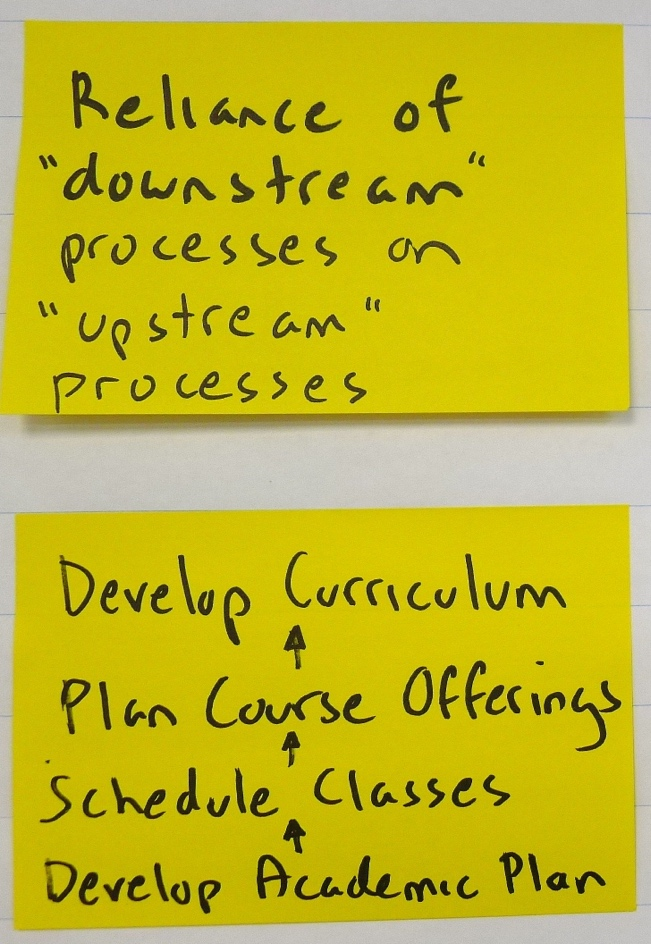 Reliance of
"downstream"
processes on
"upstream"
processes
Develop Curriculum
↑
Plan Course Offerings
↑
Schedule Classes
↑
Develop Academic Plan